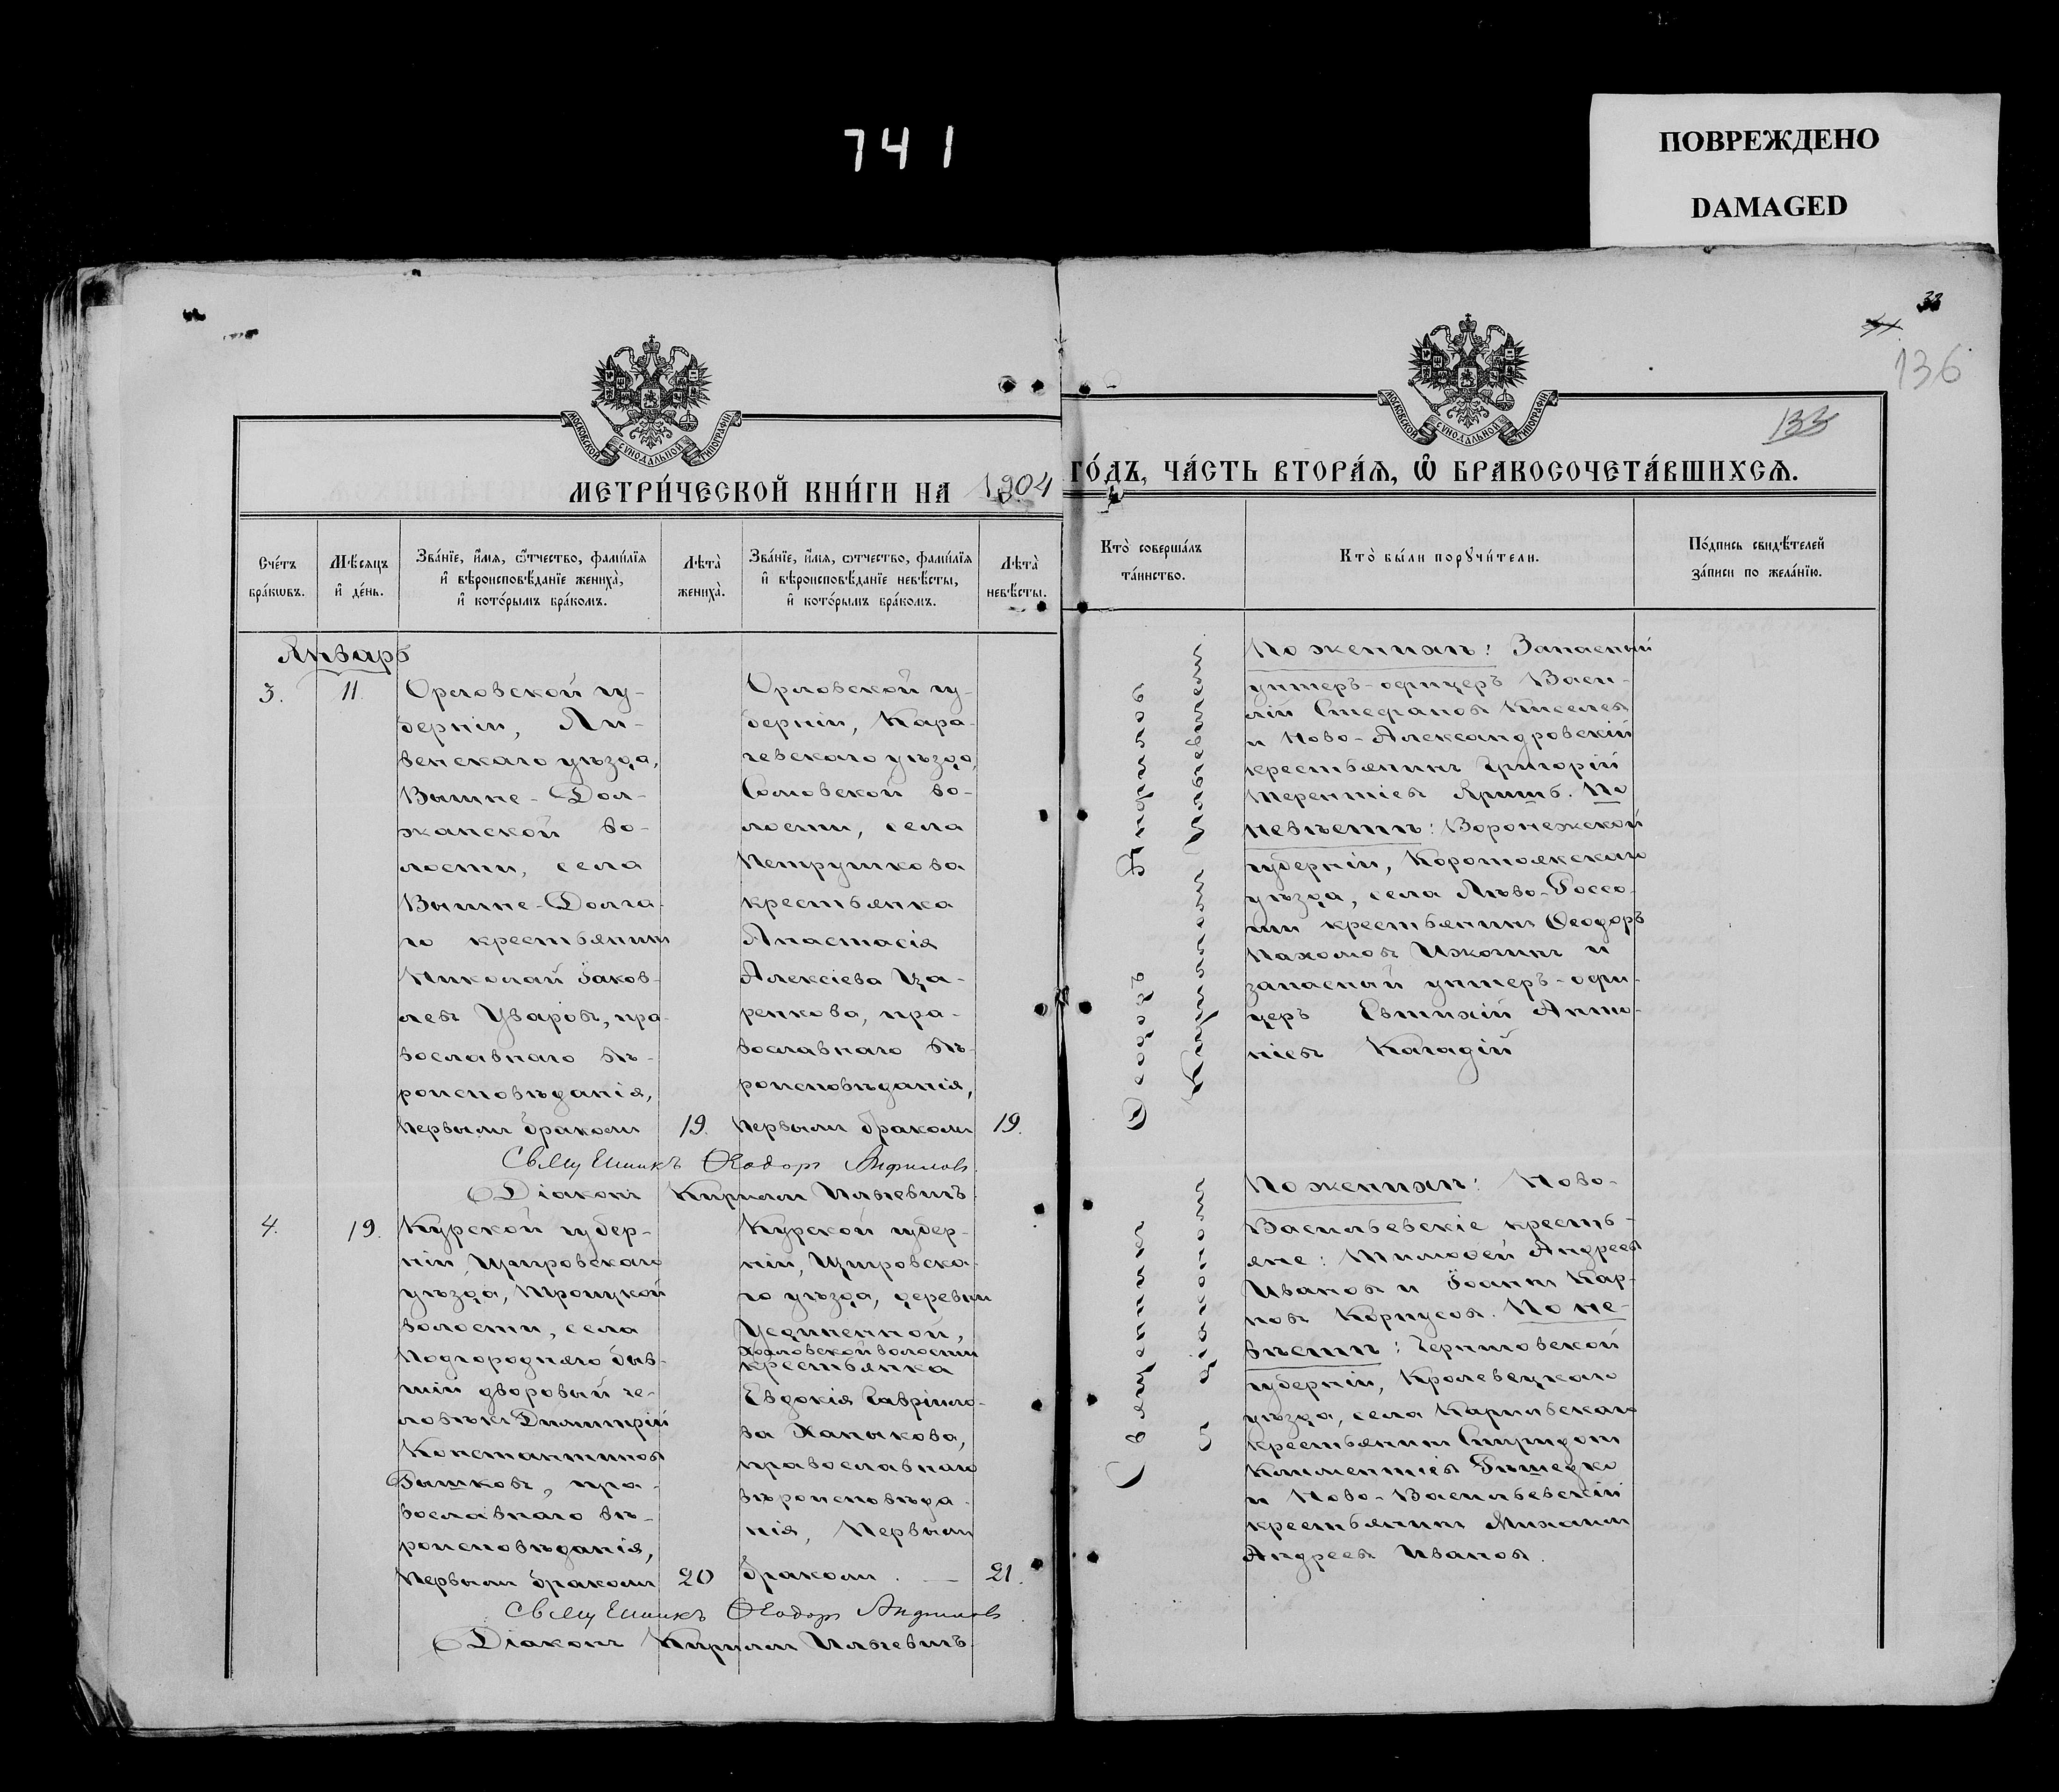 741
ПОВРЕЖДЕНО
DAMAGED
33
136
133
МОСКОВСКОЙ СУНОДАЛЬНОЙ ТИПОГРАФІИ
МОСКОВСКОЙ СУНОДАЛЬНОЙ ТИПОГРАФІИ
МЕТРИ́ЧЕСКОЙ КНИ́ГИ НА 1904
ГО́ДЪ, ЧА́СТЬ ВТОРА́Ѧ, Ѽ БРАКОСОЧЕТА́ВШИХСѦ.
Сче́тъ
бра́кωвъ.
Мѣ́сяцъ
и҆ де́нь.
Зва́нїе, и҆́мя, ѻ҆́тчество, фами́лїя
и҆ вѣроисповѣ́данїе жениха̀,
и҆ кото́рымъ бра́комъ.
Лѣта̀
жениха̀.
Зва́нїе, и҆́мя, ѻтчество, фами́лїя
и҆ вѣроисповѣ́данїе невѣ́сты,
и҆ кото́рымъ бра́комъ.
Лѣта̀
невѣ́сты.
Кто̀ соверша́лъ
та́инство.
Кто̀ бы́ли порꙋчи́тели.
По́дпись свидѣ́телей
за́писи по жела́нїю.
Январь
3.
11.
Орловской гу-
берніи, Ли-
венскаго уѣзда,
Вышне-Дол-
жанской во-
лости, села
Вышне-Долга-
го крестьянинъ
Николай Іаков-
левъ Уваровъ, пра-
вославнаго вѣ-
роисповѣданія,
первымъ бракомъ
19.
Орловской гу-
берніи, Кара-
чевскаго уѣзда,
Сомовской во-
лости, села
Петрушкова
крестьянка
Анастасія
Алексіева Ца-
ренкова, пра-
вославнаго вѣ-
роисповѣданія,
первымъ бракомъ
19.
Священникъ Ѳеодоръ Анфиловъ
Діаконъ Кириллъ Ильевичъ.
Ѳеодоръ Анфиловъ
Кирилломъ Ильевичемъ
По женихѣ: Запасный
унтеръ-офицеръ Васи-
лій Стефановъ Киселевъ
и Ново-Александровскій
крестьянинъ Григорій
Терентіевъ Яришъ. По
невѣстѣ: Воронежской
губерніи, Коротоякскаго
уѣзда, села Лѣво-Россо-
ши крестьянинъ Ѳеодоръ
Пахомовъ Ижокинъ и
запасный унтеръ-офи-
церъ Евтихій Анто-
ніевъ Кагадій
4.
19.
Курской губер-
ніи, Щигровскаго
уѣзда, Троицкой
волости, села
Подгородняго быв-
шій дворовый че-
ловѣкъ Димитрій
Константиновъ
Рышковъ, пра-
вославнаго вѣ-
роисповѣданія,
первымъ бракомъ
20
Курской губер-
ніи, Щигровска-
го уѣзда, деревни
Уединенной,
Хохловской волости
крестьянка
Евдокія Гавріило-
ва Ханыкова,
православнаго
вѣроисповѣда-
нія, первымъ
бракомъ. —
21.
Священникъ Ѳеодоръ Анфиловъ
Діаконъ Кириллъ Ильевичъ.
Священникъ
съ діакономъ
По женихѣ: Ново-
Васильевскіе кресть-
яне: Тимоѳей Андреевъ
Ивановъ и Іоаннъ Кар-
повъ Корпусовъ. По не-
вѣстѣ: Черниговской
губерніи, Кролевецкаго
уѣзда, села Карильскаго
крестьянинъ Спиридонъ
Климентіевъ
и Ново-Васильевскій
крестьянинъ Михаилъ
Андреевъ Ивановъ.